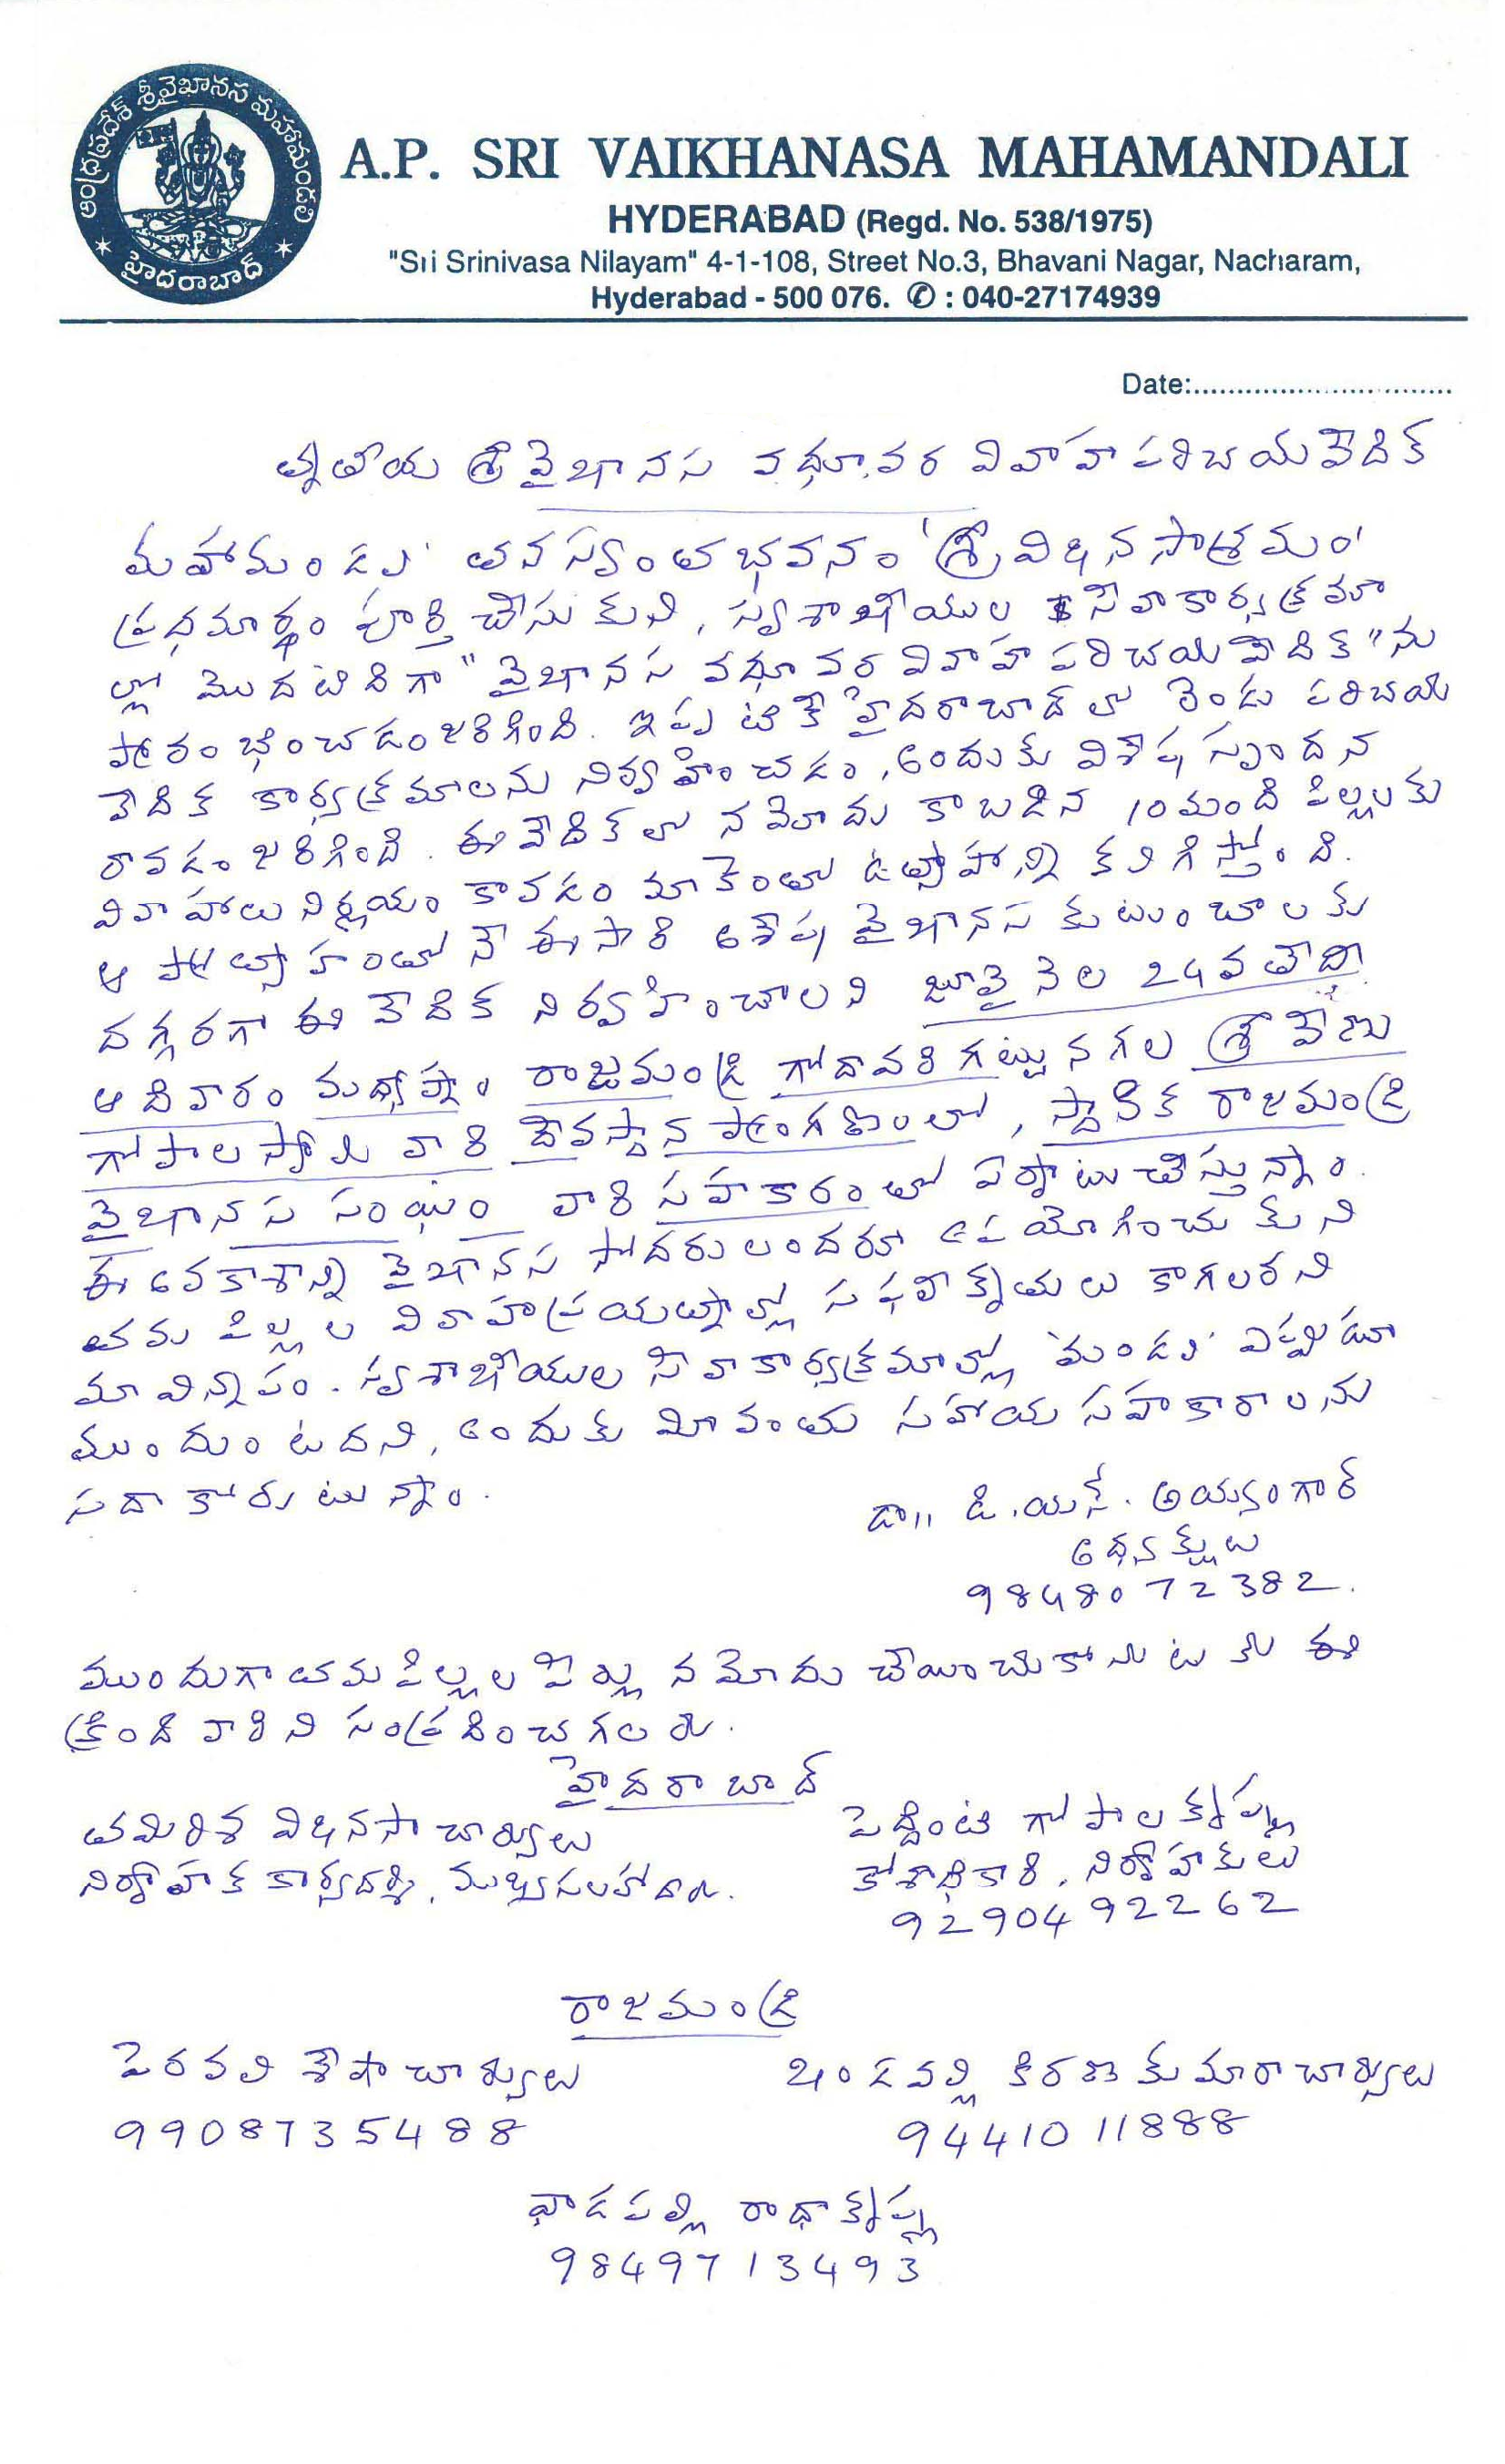 ఆంధ్రప్రదేశ్ శ్రీవైఖానస మహామండలి
హైదరాబాద్
A.P. SRI VAIKHANASA MAHAMANDALI
HYDERABAD (Regd. No. 538/1975)
"Sri Srinivasa Nilayam" 4-1-108, Street No.3, Bhavani Nagar, Nacharam,
Hyderabad - 500 076. ✆ : 040-27174939
Date:..............................
తృతీయ శ్రీవైఖానస వధూవర వివాహ పరిచయవేదిక
మహామండలి తన స్వంత భవనం 'శ్రీవిఖనసాశ్రమం'
ప్రథమార్థం పూర్తి చేసుకుని, స్వశాఖీయుల సేవాకార్యక్రమా
ల్లో మొదటిదిగా "వైఖానస వధూవర వివాహ పరిచయవేదిక"ను
ప్రారంభించడంజరిగింది. ఇప్పటికే హైదరాబాద్ లో రెండు పరిచయ
వేదిక కార్యక్రమాలను నిర్వహించడం, అందుకు విశేష స్పందన
రావడం జరిగింది. ఈవేదికలో నమోదు కాబడిన 10మంది పిల్లలకు
వివాహాలు నిర్ణయం కావడం మాకెంతో ఉత్సాహాన్ని కలిగిస్తోంది.
ఆ ప్రోత్సాహంతోనే ఈసారి అశేష వైఖానస కుటుంబాలకు
దగ్గరగా ఈ వేదిక నిర్వహించాలని జూలై నెల 24వ తేదీ
ఆదివారం మధ్యాహ్నం రాజమండ్రి గోదావరి గట్టునగల శ్రీ వేణు
గోపాలస్వామి వారి దేవస్థాన ప్రాంగణంలో, స్థానిక రాజమండ్రి
వైఖానస సంఘం వారి సహకారంతో ఏర్పాటుచేస్తున్నాం.
ఈ అవకాశాన్ని వైఖానస సోదరులందరూ ఉపయోగించుకుని
తమ పిల్లల వివాహప్రయత్నాల్లో సఫలీకృతులు కాగలరని
మా విన్నపం. స్వశాఖీయుల సేవాకార్యక్రమాల్లో 'మండలి' ఎప్పుడూ
ముందుంటదని, అందుకు మీవంతు సహాయ సహకారాలను
సదా కోరుటున్నాం.
డా,, డి.యన్. అయ్యంగార్
అధ్యక్షులు
9848072382.
ముందుగా తమపిల్లల పేర్లు నమోదు చేయించుకోనుటకు ఈ
క్రింది వారిని సంప్రదించగలరు.
హైదరాబాద్
తమిరిశ విఖనసాచార్యులు
నిర్వాహక కార్యదర్శి, ముఖ్యసలహాదారు.
పెద్దింటి గోపాలకృష్ణ
కోశాధికారి, నిర్వాహకులు
9290492262
రాజమండ్రి
పెరవలి శేషాచార్యులు
9908735488
ఖండవల్లి కిరణ్ కుమారాచార్యులు
9441011888
వాడపల్లి రాధాకృష్ణ
9849713493